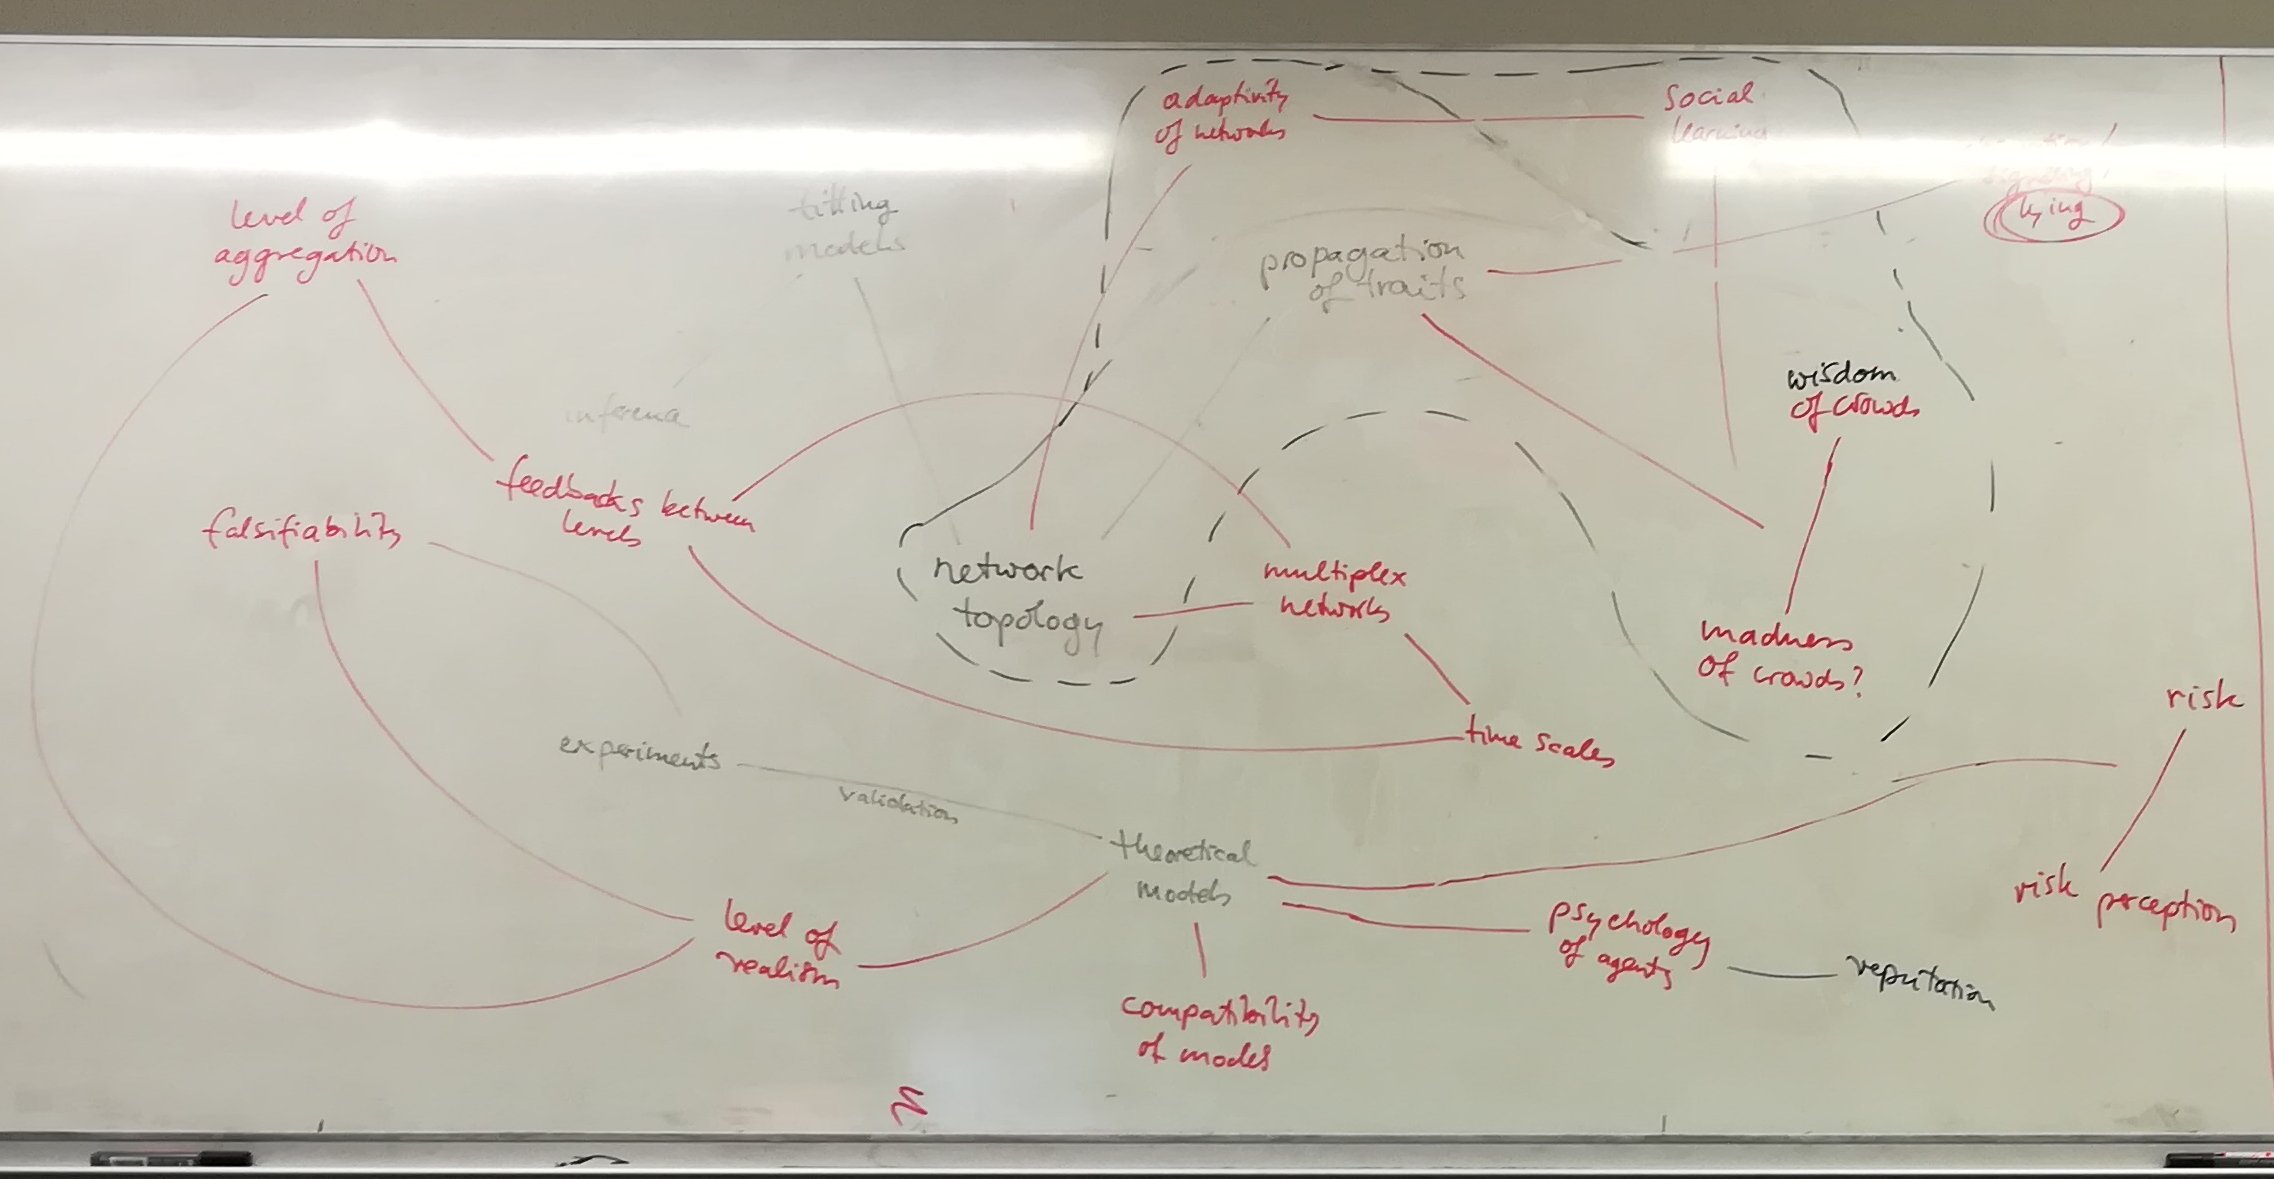 adaptivity
of networks
social
learning
level of
aggregation
fitting
models
propagation
of traits
lying
inference
wisdom
of crowds
feedbacks between
levels
falsifiability
network
topology
multiplex
networks
madness
of crowds?
time scales
risk
experiments
validation
theoretical
models
risk perception
level of
realism
psychology
of agents
reputation
compatibility
of models